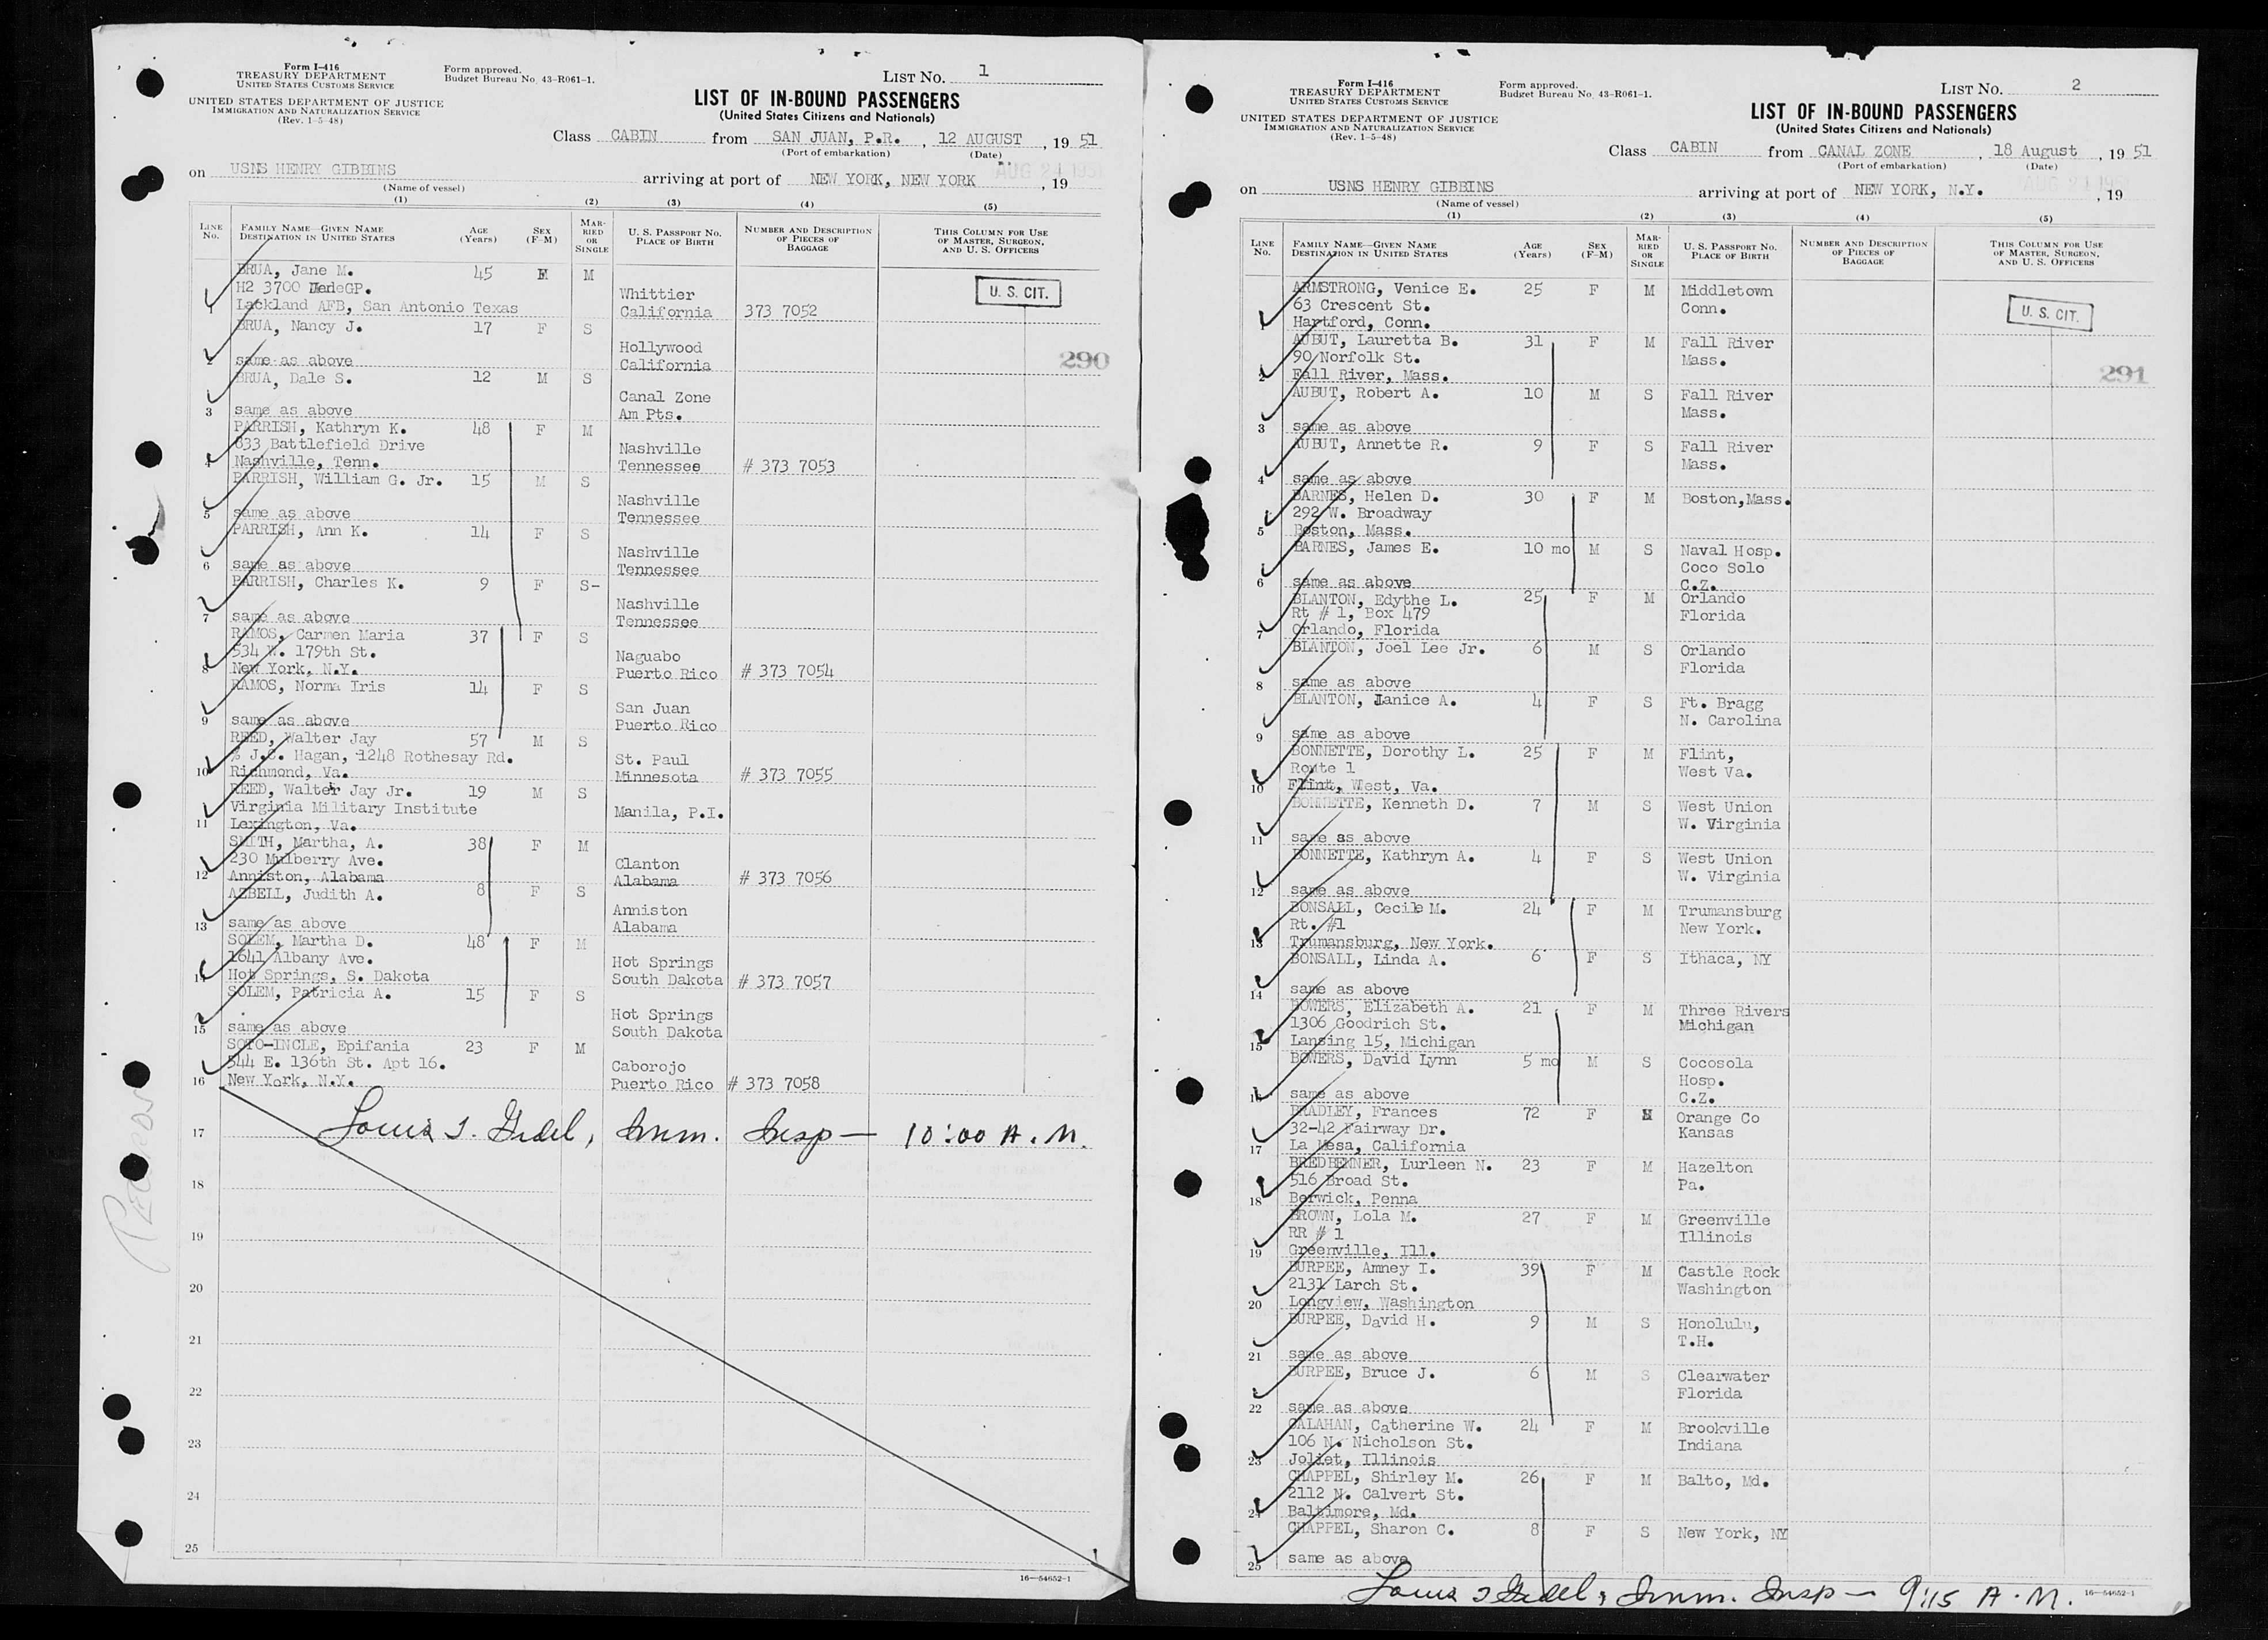 Form I-416
TREASURY DEPARTMENT
UNITED STATES CUSTOMS SERVICE
UNITED STATES DEPARTMENT OF JUSTICE
IMMIGRATION AND NATURALIZATION SERVICE
(Rev. 1-5-48)
Form approved.
Budget Bureau No. 43-R061-1.
LIST NO. 1
LIST OF IN-BOUND PASSENGERS
(United States Citizens and Nationals)
Class CABIN from SAN JUAN, P.R. , 12 AUGUST , 19 51
(Port of embarkation) (Date)
on USNS HENRY GIBBINS arriving at port of NEW YORK, NEW YORK AUG 21 1951 , 19
(Name of vessel)
(1) (2) (3) (4) (5)
LINE NO. FAMILY NAME—GIVEN NAME DESTINATION IN UNITED STATES AGE (Years) SEX (F-M) MARRIED OR SINGLE U. S. PASSPORT NO. PLACE OF BIRTH NUMBER AND DESCRIPTION OF PIECES OF BAGGAGE THIS COLUMN FOR USE OF MASTER, SURGEON, AND U. S. OFFICERS
BRUA, Jane M. 45 F M
H2 3700 GP.
Lackland AFB, San Antonio Texas
1 Whittier California 373 7052 U. S. CIT.
BRUA, Nancy J. 17 F S
2 same as above Hollywood California 290
BRUA, Dale S. 12 M S
3 same as above Canal Zone Am Pts.
PARRISH, Kathryn K. 48 F M
833 Battlefield Drive
4 Nashville, Tenn. Nashville Tennessee # 373 7053
PARRISH, William G. Jr. 15 M S
5 same as above Nashville Tennessee
PARRISH, Ann K. 14 F S
6 same as above Nashville Tennessee
PARRISH, Charles K. 9 F S-
7 same as above Nashville Tennessee
RAMOS, Carmen Maria 37 F S
534 W. 179th St.
8 New York, N.Y. Naguabo Puerto Rico # 373 7054
RAMOS, Norma Iris 14 F S
9 same as above San Juan Puerto Rico
REED, Walter Jay 57 M S
% J.C. Hagan, 1248 Rothesay Rd.
10 Richmond, Va. St. Paul Minnesota # 373 7055
REED, Walter Jay Jr. 19 M S
Virginia Military Institute
11 Lexington, Va. Manila, P.I.
SMITH, Martha, A. 38 F M
230 Mulberry Ave.
12 Anniston, Alabama Clanton Alabama # 373 7056
AZBELL, Judith A. 8 F S
13 same as above Anniston Alabama
SOLEM, Martha D. 48 F M
1641 Albany Ave.
14 Hot Springs, S. Dakota Hot Springs South Dakota # 373 7057
SOLEM, Patricia A. 15 F S
15 same as above Hot Springs South Dakota
SOTO-INCLE, Epifania 23 F M
544 E. 136th St. Apt 16.
16 New York, N.Y. Caborojo Puerto Rico # 373 7058
17 Louis Imm. Insp — 10:00 A.M.
18
19
20
21
22
23
24
25
16—54652-1
Form I-416
TREASURY DEPARTMENT
UNITED STATES CUSTOMS SERVICE
UNITED STATES DEPARTMENT OF JUSTICE
IMMIGRATION AND NATURALIZATION SERVICE
(Rev. 1-5-48)
Form approved.
Budget Bureau No. 43-R061-1.
LIST NO. 2
LIST OF IN-BOUND PASSENGERS
(United States Citizens and Nationals)
Class CABIN from CANAL ZONE , 18 August , 19 51
(Port of embarkation) (Date)
on USNS HENRY GIBBINS arriving at port of NEW YORK, N.Y. AUG 21 1951 , 19
(Name of vessel)
(1) (2) (3) (4) (5)
LINE NO. FAMILY NAME—GIVEN NAME DESTINATION IN UNITED STATES AGE (Years) SEX (F-M) MARRIED OR SINGLE U. S. PASSPORT NO. PLACE OF BIRTH NUMBER AND DESCRIPTION OF PIECES OF BAGGAGE THIS COLUMN FOR USE OF MASTER, SURGEON, AND U. S. OFFICERS
ARMSTRONG, Venice E. 25 F M Middletown
63 Crescent St. Conn. U. S. CIT.
1 Hartford, Conn.
AUBUT, Lauretta B. 31 F M Fall River
90 Norfolk St. Mass.
2 Fall River, Mass. 291
AUBUT, Robert A. 10 M S Fall River Mass.
3 same as above
AUBUT, Annette R. 9 F S Fall River Mass.
4 same as above
BARNES, Helen D. 30 F M Boston, Mass.
292 W. Broadway
5 Boston, Mass.
BARNES, James E. 10 mo M S Naval Hosp. Coco Solo
6 same as above C.Z.
BLANTON, Edythe L. 25 F M Orlando
Rt # 1, Box 479 Florida
7 Orlando, Florida
BLANTON, Joel Lee Jr. 6 M S Orlando Florida
8 same as above
BLANTON, Janice A. 4 F S Ft. Bragg N. Carolina
9 same as above
BONNETTE, Dorothy L. 25 F M Flint,
Route 1 West Va.
10 Flint, West, Va.
BONNETTE, Kenneth D. 7 M S West Union W. Virginia
11 same as above
BONNETTE, Kathryn A. 4 F S West Union W. Virginia
12 same as above
BONSALL, Cecile M. 24 F M Trumansburg
Rt. #1 New York.
13 Trumansburg, New York.
BONSALL, Linda A. 6 F S Ithaca, NY
14 same as above
BOWERS, Elizabeth A. 21 F M Three Rivers
1306 Goodrich St. Michigan
15 Lansing 15, Michigan
BOWERS, David Lynn 5 mo M S Cocosola Hosp.
16 same as above C.Z.
BRADLEY, Frances 72 F Orange Co
32-42 Fairway Dr. Kansas
17 La Mesa, California
BREDBENNER, Lurleen N. 23 F M Hazelton
516 Broad St. Pa.
18 Berwick, Penna
BROWN, Lola M. 27 F M Greenville
RR # 1 Illinois
19 Greenville, Ill.
BURPEE, Amney I. 39 F M Castle Rock
2131 Larch St. Washington
20 Longview, Washington
BURPEE, David H. 9 M S Honolulu, T.H.
21 same as above
BURPEE, Bruce J. 6 M S Clearwater Florida
22 same as above
CALAHAN, Catherine W. 24 F M Brookville
106 N. Nicholson St. Indiana
23 Joliet, Illinois
CHAPPEL, Shirley M. 26 F M Balto, Md.
2112 N. Calvert St.
24 Baltimore, Md.
CHAPPEL, Sharon C. 8 F S New York, NY
25 same as above
Louis Imm. Insp — 9:15 A.M.
16—54652-1